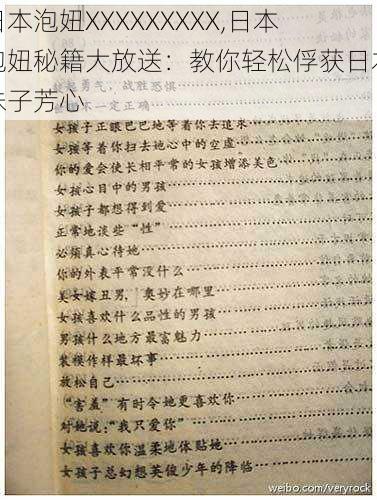 日本泡妞XXXXXXXXX,日本
泡妞秘籍大放送：教你轻松俘获日本
妹子芳心
起勇气，战胜恐惧
女孩子正眼巴巴地等着你去追求
女孩子等待着你扫去她心中的空虚
你的爱会使长相平常的女孩增添美色
女孩心目中的男孩
女孩子都想得到爱
正常地谈些“性”
必须真心待她
你的外表平常没什么
美女嫁丑男，奥妙在哪里
女孩喜欢什么品性的男孩
男孩什么地方最富魅力
装模作样最坏事
放松自己
“害羞”有时令她更喜欢你
对她说：“我只爱你”
女孩喜欢你温柔地体贴她
女孩子总幻想英俊少年的降临
weibo.com/veryrock